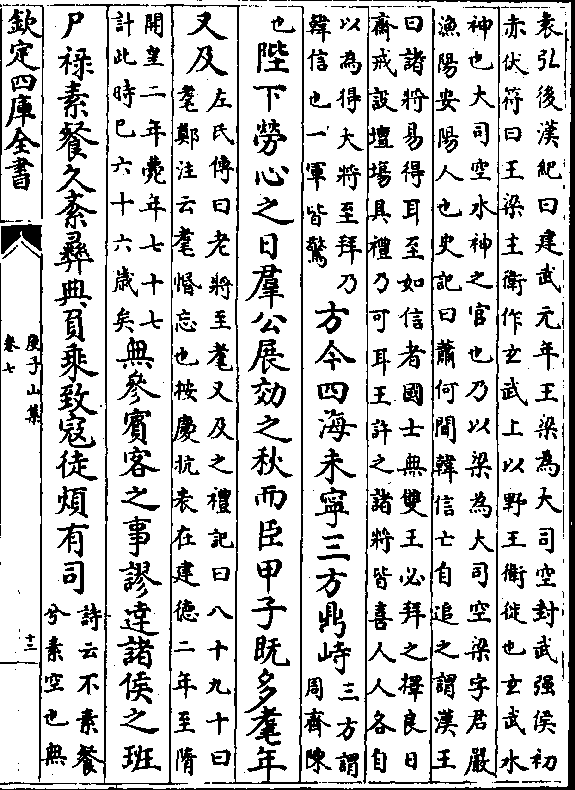 袁弘後漢紀曰建武元年王梁為大司空封武强侯初
赤伏符曰王梁主衛作玄武上以野王衛徙也玄武水
神也大司空水神之官也乃以梁為大司空梁字君嚴
漁陽安陽人也史記曰蕭何聞韓信亡自追之謂漢王
曰諸將易得耳至如信者國士無雙王必拜之擇良日
齋戒設壇塲具禮乃可耳王許之諸將皆喜人人各自
以為得大將至拜乃
韓信也一軍皆驚
方今四海未寧三方鼎峙
三方謂
周齊陳
也
陛下勞心之日羣公展効之秋而臣甲子旣多耄年
又及
左氏傳曰老將至耄又及之禮記曰八十九十曰
耄鄭注云耄惛忘也按慶抗表在建德二年至隋
開皇二年薨年七十七
計此時已六十六歲矣
無參賓客之事謬達諸侯之班
尸祿素餐久紊彞典負乘致寇徒煩有司
詩云不素餐
兮素空也無
欽定四庫全書
庾子山集
卷七
十三